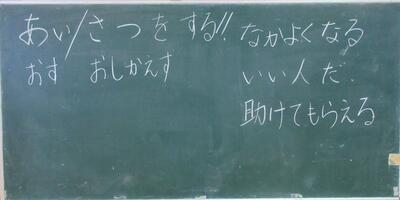 あい/さつをする!!
おす おしかえす
なかよくなる
いい人だ
助けてもらえる